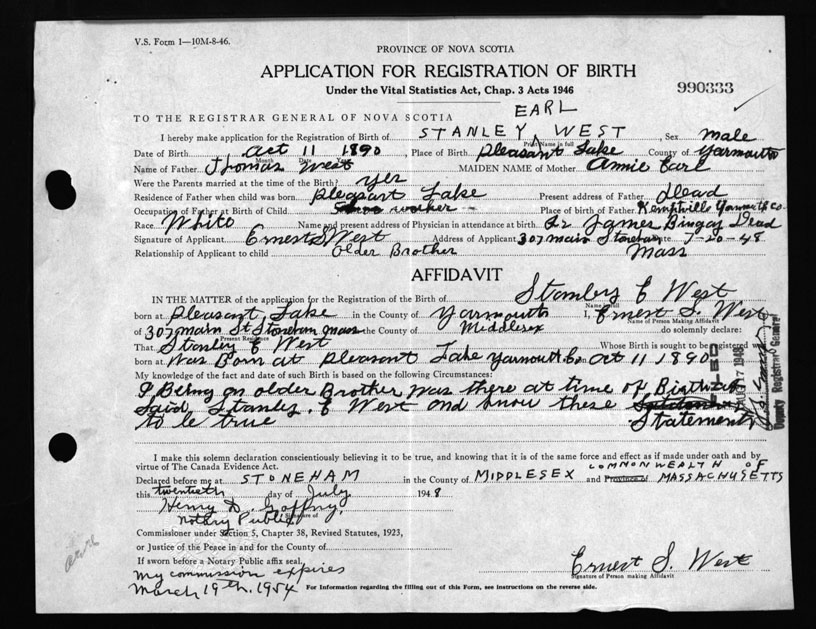 V.S. Form 1—10M-8-46.
PROVINCE OF NOVA SCOTIA
APPLICATION FOR REGISTRATION OF BIRTH
Under the Vital Statistics Act, Chap. 3 Acts 1946
990333
TO THE REGISTRAR GENERAL OF NOVA SCOTIA
EARL
I hereby make application for the Registration of Birth of STANLEY ^ WEST, Sex male
Print Name in full
Date of Birth Oct 11 1890, Place of Birth Pleasant Lake County of Yarmouth
Month Date Year
Name of Father Thomas West MAIDEN NAME of Mother Annie Earl
Were the Parents married at the time of Birth? Yes
Residence of Father when child was born Pleasant Lake Present address of Father Dead
Occupation of Father at Birth of Child worker Place of birth of Father Kemptville Yarmouth Co.
Race White Name and present address of Physician in attendance at birth Dr James Bingay Dead
Signature of Applicant Ernest S West Address of Applicant 307 Main Stoneham Date 7-20-48
Relationship of Applicant to child Older Brother Mass
AFFIDAVIT
IN THE MATTER of the application for the Registration of Birth of Stanley E West
Name in full
born at Pleasant Lake in the County of Yarmouth I, Ernest S. West
Name of Person Making Affidavit
of 307 Main St Stoneham Mass the County of Middlesex do solemnly declare:
Present Residence
That Stanley E West Whose Birth is sought to be registered was
born at Was Born at Pleasant Lake Yarmouth Co. on Oct 11 1890
My knowledge of the fact and date of such Birth is based on the following Circumstances:
I Being an older Brother was there at time of Birth of
Said Stanley. E West and know these
to be true Statements
AUG 17 1948
Deputy Registrar General
I make this solemn declaration conscientiously believing it to be true, and knowing that it is of the same force and effect as if made under oath and by
virtue of The Canada Evidence Act.
COMMONWEALTH OF
Declared before me at STONEHAM in the County of MIDDLESEX and Province of MASSACHUSETTS
this twentieth day of July 1948
Henry D. Gaffny,
Signature of
Notary Public
Commissioner under Section 5, Chapter 38, Revised Statutes, 1923,
or Justice of the Peace in and for the County of
If sworn before a Notary Public affix seal.
Ernest S. West
Signature of Person making Affidavit
My commission expires
March 19th, 1954
For Information regarding the filling out of this Form, see instructions on the reverse side.